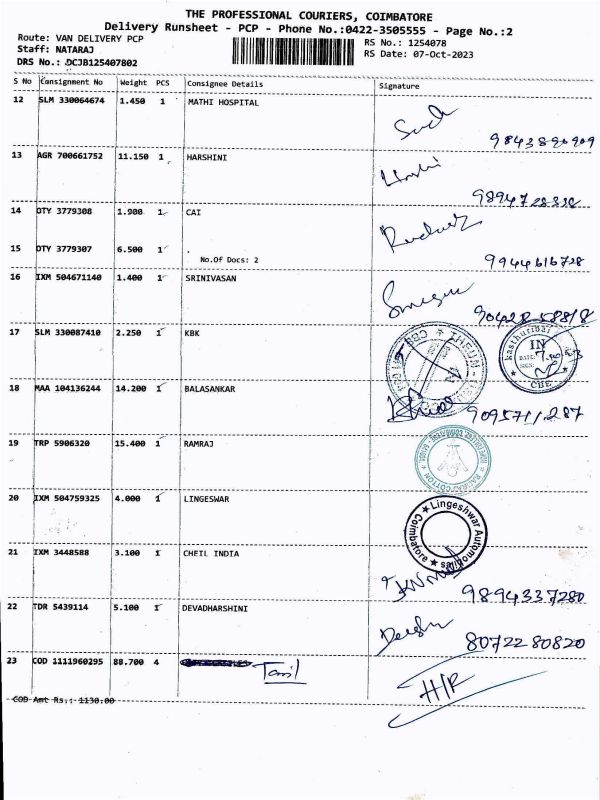 THE PROFESSIONAL COURIERS, COIMBATORE
Delivery Runsheet - PCP - Phone No.:0422-3505555 - Page No.:2
Route: VAN DELIVERY PCP
RS No.: 1254078
Staff: NATARAJ
RS Date: 07-Oct-2023
DRS No.: DCJB125407802
S No Consignment No Weight PCS Consignee Details Signature
12 SLM 330064674 1.450 1 MATHI HOSPITAL
13 AGR 700661752 11.150 1 HARSHINI
14 OTY 3779308 1.900 1 CAI
15 OTY 3779307 6.500 1 .
No.Of Docs: 2
9944616728
16 IXM 504671140 1.400 1 SRINIVASAN
90428-58818
17 SLM 330087410 2.250 1 KBK
kasthuribai
IN
DATE:
CBE
18 MAA 104136244 14.200 1 BALASANKAR
9095711287
19 TRP 5906320 15.400 1 RAMRAJ
20 IXM 504759325 4.000 1 LINGESWAR
Lingeshwar Automo
Coimbatore
21 IXM 3448588 3.100 1 CHEIL INDIA
9894337280
22 TDR 5439114 5.100 1 DEVADHARSHINI
8072280820
23 COD 1111960295 88.700 4
Tamil
H/R
COD Amt Rs.: 1130.00